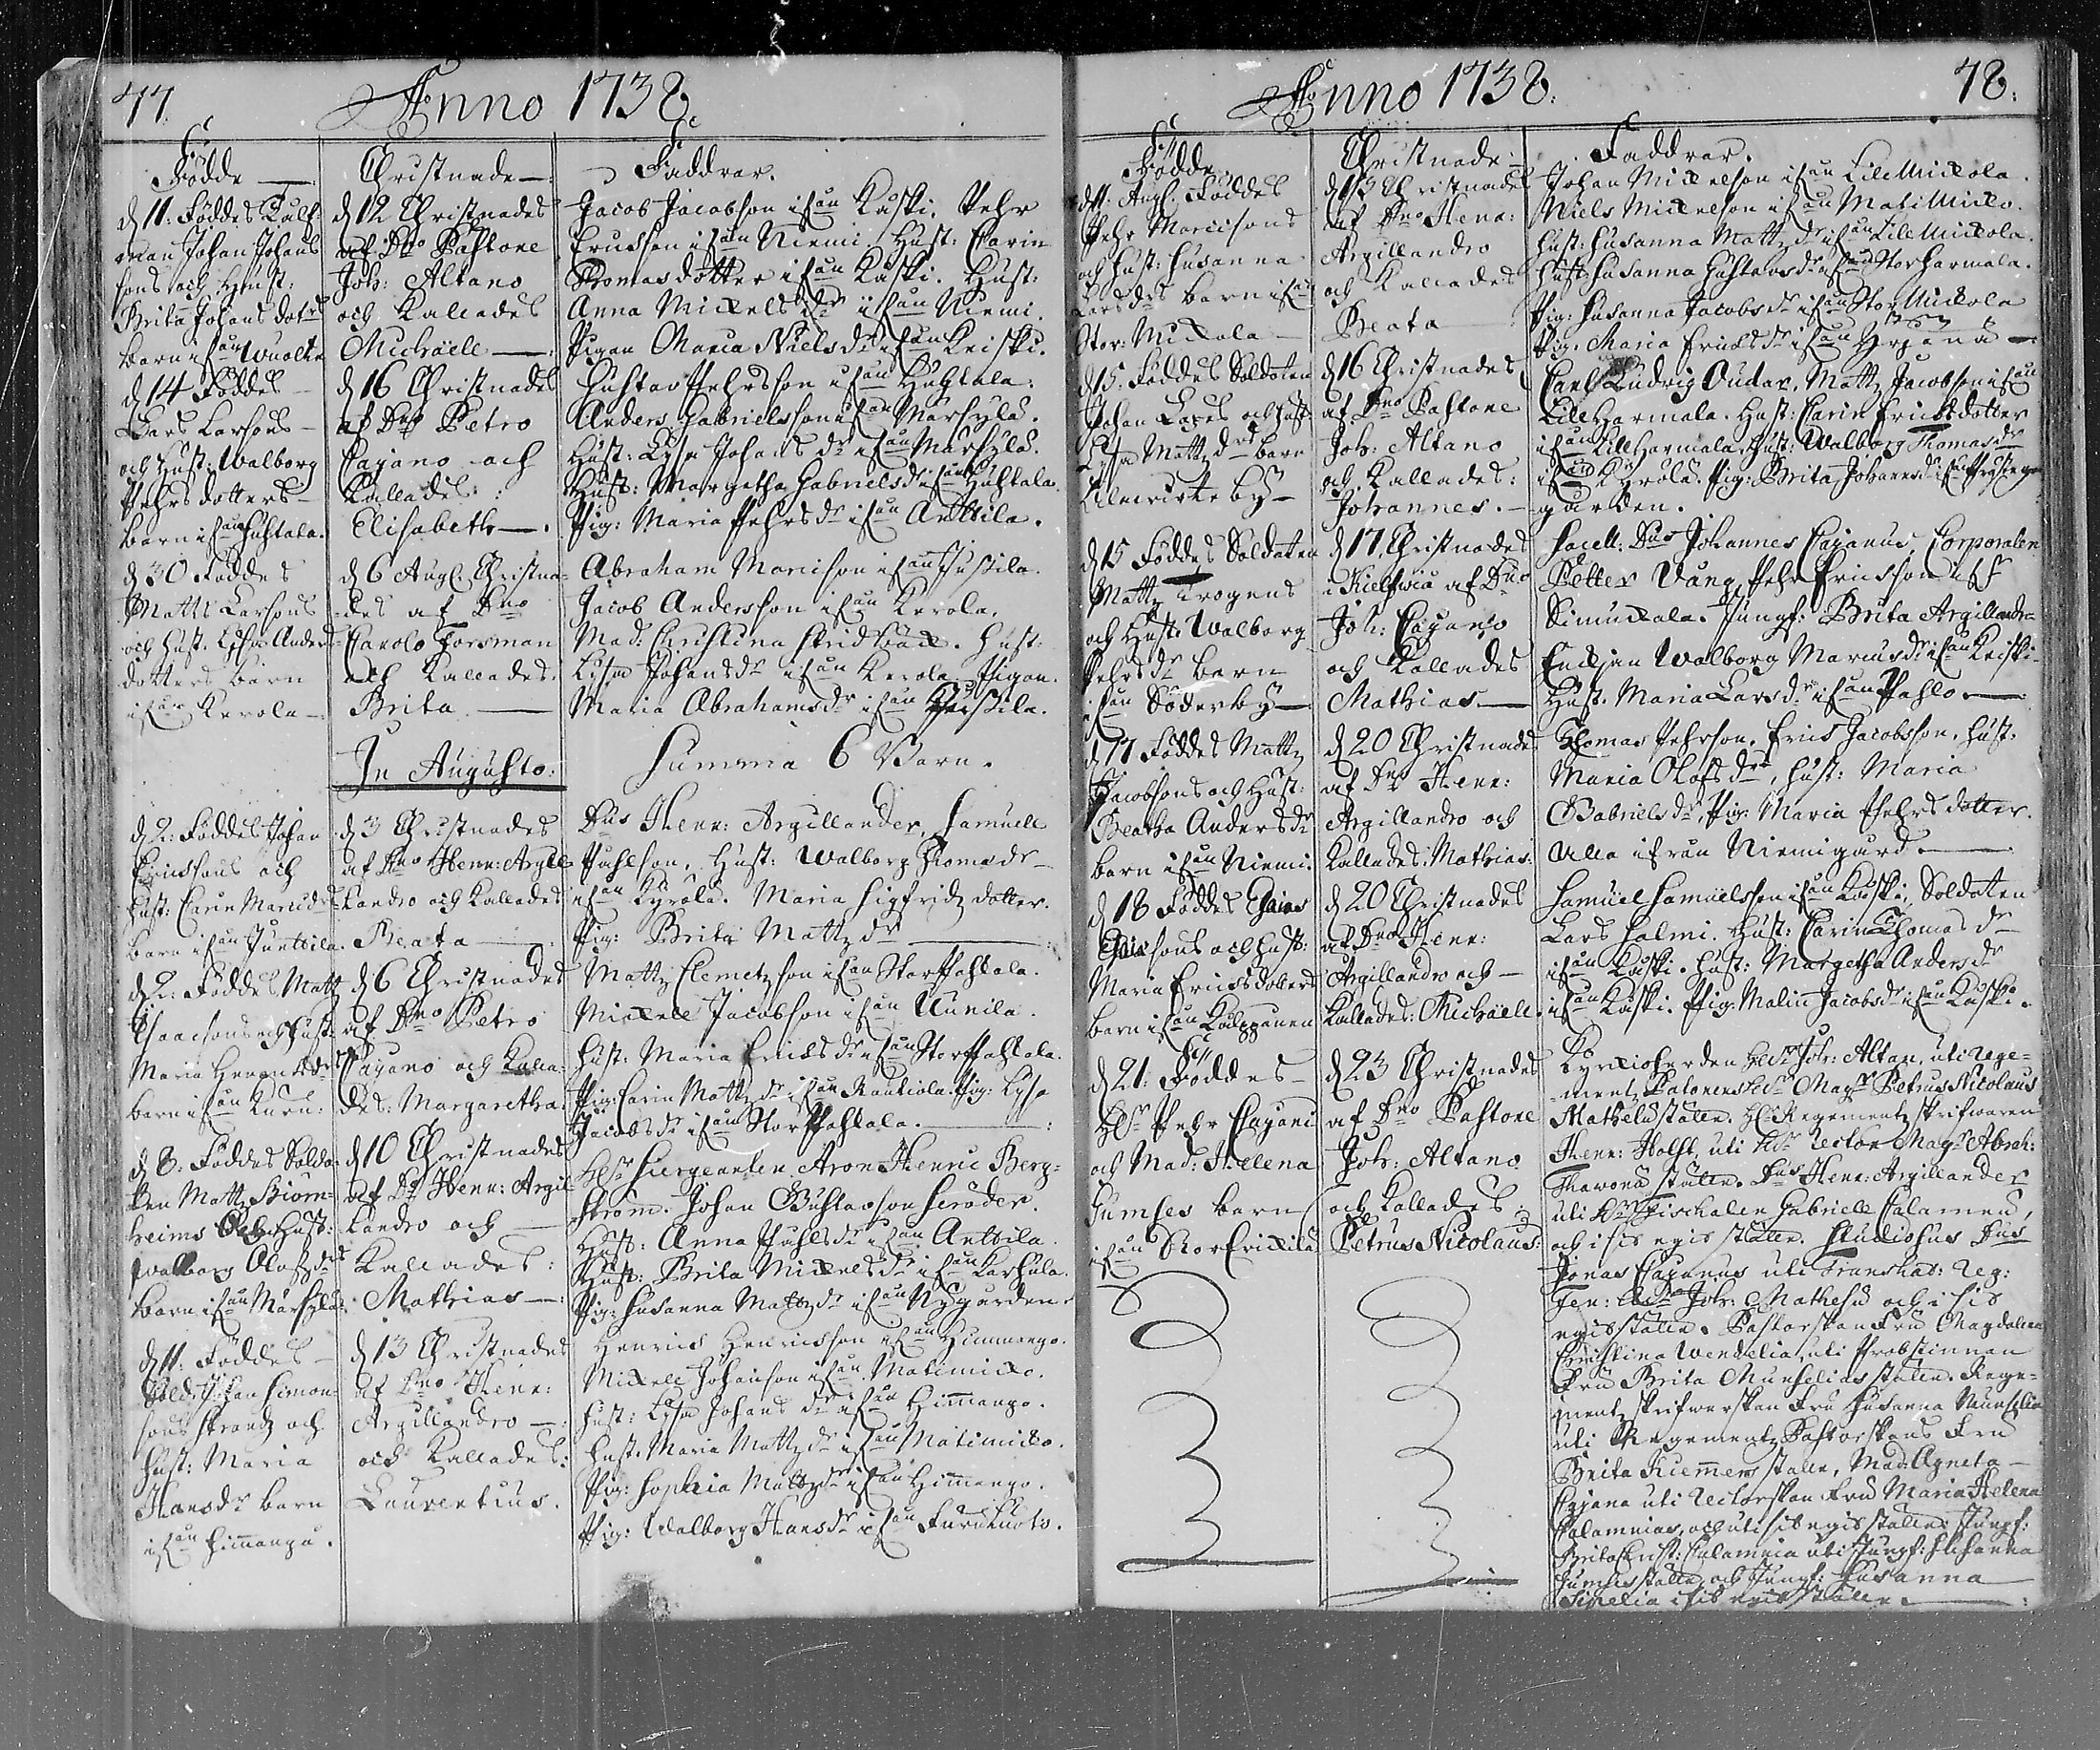 77.
Anno 1738.
Födde
d 11: Föddes Rålf
man Johan Johans
sons och Hust:
Brita Johans dotrs
barn ifrån Wuolte
d 14 Föddes
Lars Larsons
och Hust: Walborg
Pehrs dotters
barn ifrån Huhtala.
d 30 Föddes
Matts Larsons
och Hust. Lysa Anders
dotters barn
ifrån Kerola
d 2: Föddes Johan
Ericksons och
Hust: Carin Marcusdrs
barn ifrån Junttila.
d 2: Föddes Matz
Isaacsons och Hust:
Maria Henrics drs
barn ifrån
d 8: Föddes Solda
ten Matz Biörn
heims och Hust:
Walborg Olofz drs
barn ifrån Marsyla
d 11. Föddes
Sold: Johan Simon
sons och
Hust: Maria
Hansdr barn
ifrån Himanga.
Christnade
d 12 Christnades
af Dno Pastore
Joh: Altano
och Kallades
Michaell
d 16 Christnades
af Dno Petro
Cajano och
Kallades:
Elisabeth.
d 6 Augt. Christna
des af Dno
Carolo Forsman
och Kallades.
Brita
In Augusto:
d 3 Christnades
af Dno Henr: Argil
landro och Kallades
Beata
d 6 Christnades
af Dno Petro
Cajano och Kalla
des: Margaretha
d 10 Christnades
af Dno Henr: Argil
landro och
Kallades:
Mathias
d 13 Christnades
af Dno Henr:
Argillandro
och Kallades:
Laurentius.
Faddrar.
Jacob Jacobson ifrån Kåski. Pehr
Ericsson ifrån Niemi. Hust: Carin
Thomasdotter ifrån Kåski. Hust:
Anna Mickels dr ifrån Niemi.
Pigan Maria Niels dr ifrån Keiski.
Gustav Pehrsson ifrån Huhtala:
Anders Gabrielsson ifrån Marsylä.
Hust: Lysa Johans dr ifrån Marsylä.
Hust: Margetha Gabrielsdr ifrån Huhtala
Pig: Maria Pehrs dr ifrån Anttila.
Abraham Marcison ifrån Jussila.
Jacob Andersson ifrån Kerola.
Mad: Christina Hust:
Lysa Johansdr ifrån Kerola. Pigan.
Maria Abrahamsdr ifrån Jussila.
Summa 6 Barn.
Dns Henr: Argillander, Samuell
Pahlson. Hust: Walborg Thomasdr
ifrån Kyrölä. Maria Sigfridz dotter.
Pig: Brita Mattz dr
Mattz Clemetzson ifrån Storpahkala.
Mickell Jacobson ifrån Uunila.
Hust: Maria Ericks dr ifrån Storpahkala.
Pig: Carin Mattz dr ifrån Rautiola. Pig: Lysa
Jacobs dr ifrån Storpahkala.
Hr Sergeanten Aron Henric Berg-
ström. Johan Gustavson
Hust: Anna Pahls dr ifrån Anttila.
Hust: Brita Mickels dr ifrån Karhula.
Pig: Susanna Mattz dr ifrån Nygården
Henrics Henricsson ifrån Himmango.
Mickell Johanson ifrån Matimicko.
Hust: Lysa Johans dr ifrån Himango.
Hust. Maria Mattz dr ifrån Matimicko.
Pig: Sophia Mattz dr ifrån Himango.
Pig: Walborg Hans dr ifrån
Anno 1738.
78.
Födde
d 11: Augt. Föddes
Pehr Marcisons
och Hust: Susanna
Larsdrs barn ifrån
Stor: Mickola
d 15. Föddes Soldaten
Johan och Hust
Lysa Mattz drs barn
by
d 15 Föddes Soldaten
Mattz Trogens
och Hust: Walborg
Pehrs dr barn
ifrån Söderby
d 17 Föddes Mattz
Jacobsons och Hust:
Beatha Anders dr
barn ifrån Niemi.
d 18 Föddes Esaias
Esaiæsons och Hust:
Maria Ericsdoters
barn ifrån
d 21: Föddes
Hr Pehr Cajani
och Mad: Helena
barn
ifrån Storerickilä
Christnade
d 13 Christnades
af Dno Henr:
Argillandro
och Kallades
Beata
d 16 Christnades
af Dno Pastore
Joh: Altano
och Kallades:
Johannes.
d 17. Christnades
i af Dno
Joh: Cajano
och Kallades
Mathias
d 20 Christnades
af Dno Henr:
Argillandro och
Kallades: Mathias:
d 20 Christnades
af Dno Henr:
Argillandro och
Kallades: Michaell.
d 23 Christnades
af Dno Pastore
Joh: Altano
och Kallades:
Petrus Nicolaus:
Faddrar.
Johan Mickelson ifrån Lill Mickola.
Niels Mickelson ifrån Matimicko.
Hust: Susanna Mattz dr ifrån Lill Mickola.
Hust: Susanna Gustavs dr ifrån Storharmala.
Pig: Susanna Jacobsdr ifrån Stor Mickola
Pig. Maria Ericks dr ifrån Yrjänä
Carl Ludvig Oudar, Mattz Jacobson ifrån
Lill Harmala. Hust: Carin Ericksdotter
ifrån Lillharmala, Hust: Walborg Thomasdr
ifrån Kyrölä. Pig: Brita Johansdr ifrån Prästе
gården.
Sacell: Dns Johannes Cajanus, Corporalen
Petter Vång, Pehr Ericsson
Simuckala. Jungf: Brita Argillander
Enckjan Walborg Marcusdr ifrån Keiski
Hust. Maria Larsdr ifrån Pahlo
Thomas Pehrson. Erics Jacobsson. Hust:
Maria Olofs dr, Hust: Maria
Gabriels dr, Pig: Maria Pehrsdotter.
Alla ifrån Niemigård.
Samuel Samuelsson ifrån Kåski, Soldaten
Lars Halmi. Hust: Carin Thomas dr
ifrån Kåski. Hust: Margetha Anders dr
ifrån Kåski. Pig: Malin Jacobsdr ifrån Kåski.
Kyrkioherden Hr Joh: Altan, uti Rege-
mentz Pastorens Hr Magr Petrus Nicolaus
Mathesii ställe. Hr Regementz skrifwaren
Henr: Holst, uti Hr Rector Magr Abrah:
ställe. Dns Henr: Argillander
uti Hr Fischalen Gabriell Calamnii,
och i sis egis ställe. Studiosus Dns
Jonas Cajanus uti
Joh: Mathesii och i sis
egis ställe. Pastorskan Fru Magdalena
Christina Wendelia, uti Probstinnan
Fru Brita Munselias ställe. Rege-
mentz skrifwerskan Fru Susanna Munselia
uti Regementz Pastorskans Fru
Brita ställe, Mad: Agneta
Cajana uti Rectorskan Fru Maria Helena
Calamnias, och uti sis egis ställe: Jungf:
Brita Christ: Calamnia uti Jungf: Susanna
ställe, och Jungf: Susanna
i sis egis ställe